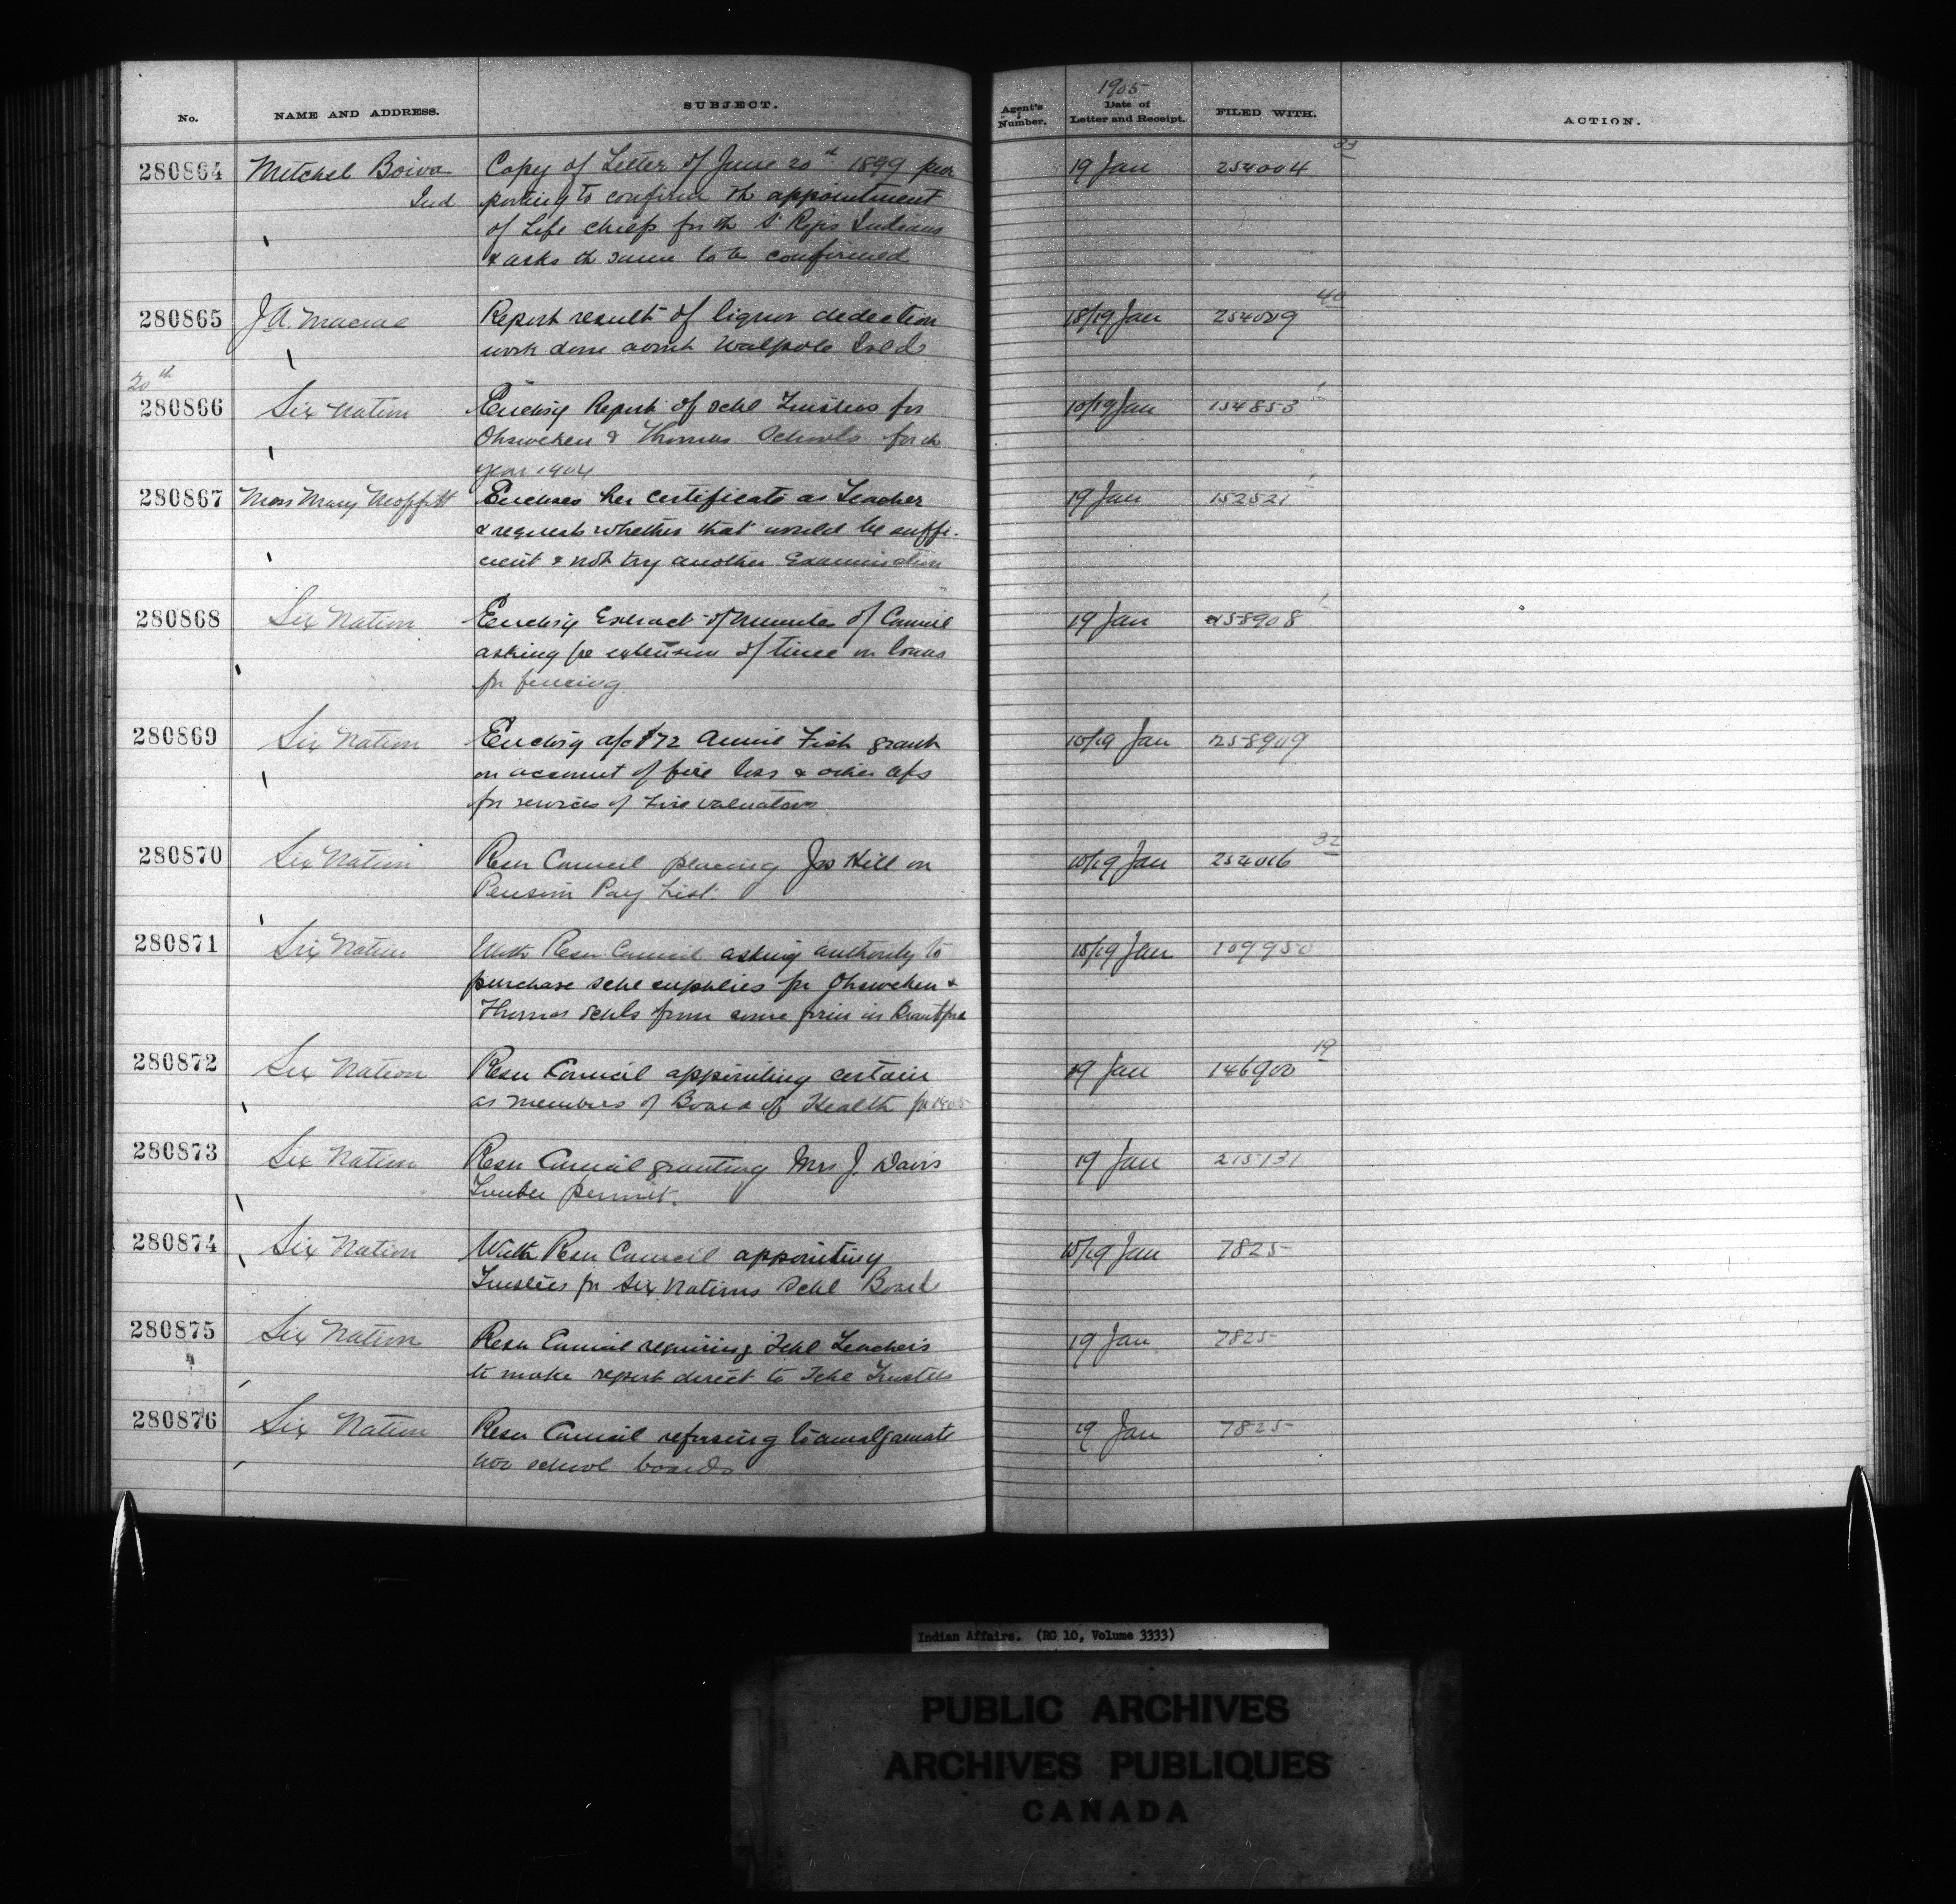 No. NAME AND ADDRESS. SUBJECT. Agent's Number. 1905 Date of Letter and Receipt. FILED WITH. ACTION.
280864 Mitchel Boiva Copy of Letter of June 20th 1899 pur 19 Jan 254004
Ind porting to confirm th appointment
of Life chiefs for th St Regis Indians
& asks th same to be confirmed
280865 J A. Macrae Report result of liquor dedection 18/19 Jan 254009 40
work done Walpole Isld
20th
280866 Six Nation Enclosig Report of schl Trustees for 10/19 Jan 154853 1
Ohsweken & Thomas Schools for th
year 1904
280867 Miss Mary Moffitt Encloses her certificate as Teacher 19 Jan 152521 1
& requests whether that would be suffi-
cient & not try another Examination
280868 Six Nation Enclosig Extract of Minutes of Council 19 Jan 258908 1
asking for extension of time on loans
for fencing
280869 Six Nation Enclosig a/c $72 Fish grant 10/19 Jan 258909
on account of fire loss & other a/cs
for services of Fire valuators
280870 Six Nation Resn Council placing Jos Hill on 10/19 Jan 254006 32
Pension Pay List.
280871 Six Nation With Resn Council asking authority to 10/19 Jan 109950
purchase schl supplies for Ohsweken &
Thomas Schls from some firm in Brantford
280872 Six Nation Resn Council appointing certain 19 Jan 146900 19
as members of Board of Health for 1905
280873 Six Nation Resn Council granting Mrs J. Davis 19 Jan 215131
Timber permit.
280874 Six Nation With Resn Council appointing 10/19 Jan 7825
Trustees for Six Nations Schl Board
280875 Six Nation Resn Council requiring Schl Teachers 19 Jan 7825
to make report direct to Schl Trustees
280876 Six Nation Resn Council refusing to amalgamate 19 Jan 7825
two school boards
Indian Affairs. (RG 10, Volume 3333)
PUBLIC ARCHIVES
ARCHIVES PUBLIQUES
CANADA